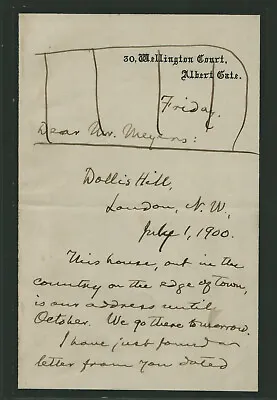 30, Wellington Court,
Albert Gate.
Friday.
Dear Mr. Meyers:
Dollis Hill,
London, N. W,
July 1, 1900.
This house, out in the
country on the edge of town,
is our address until
October. We go there tomorrow.
I have just found a
letter from you dated